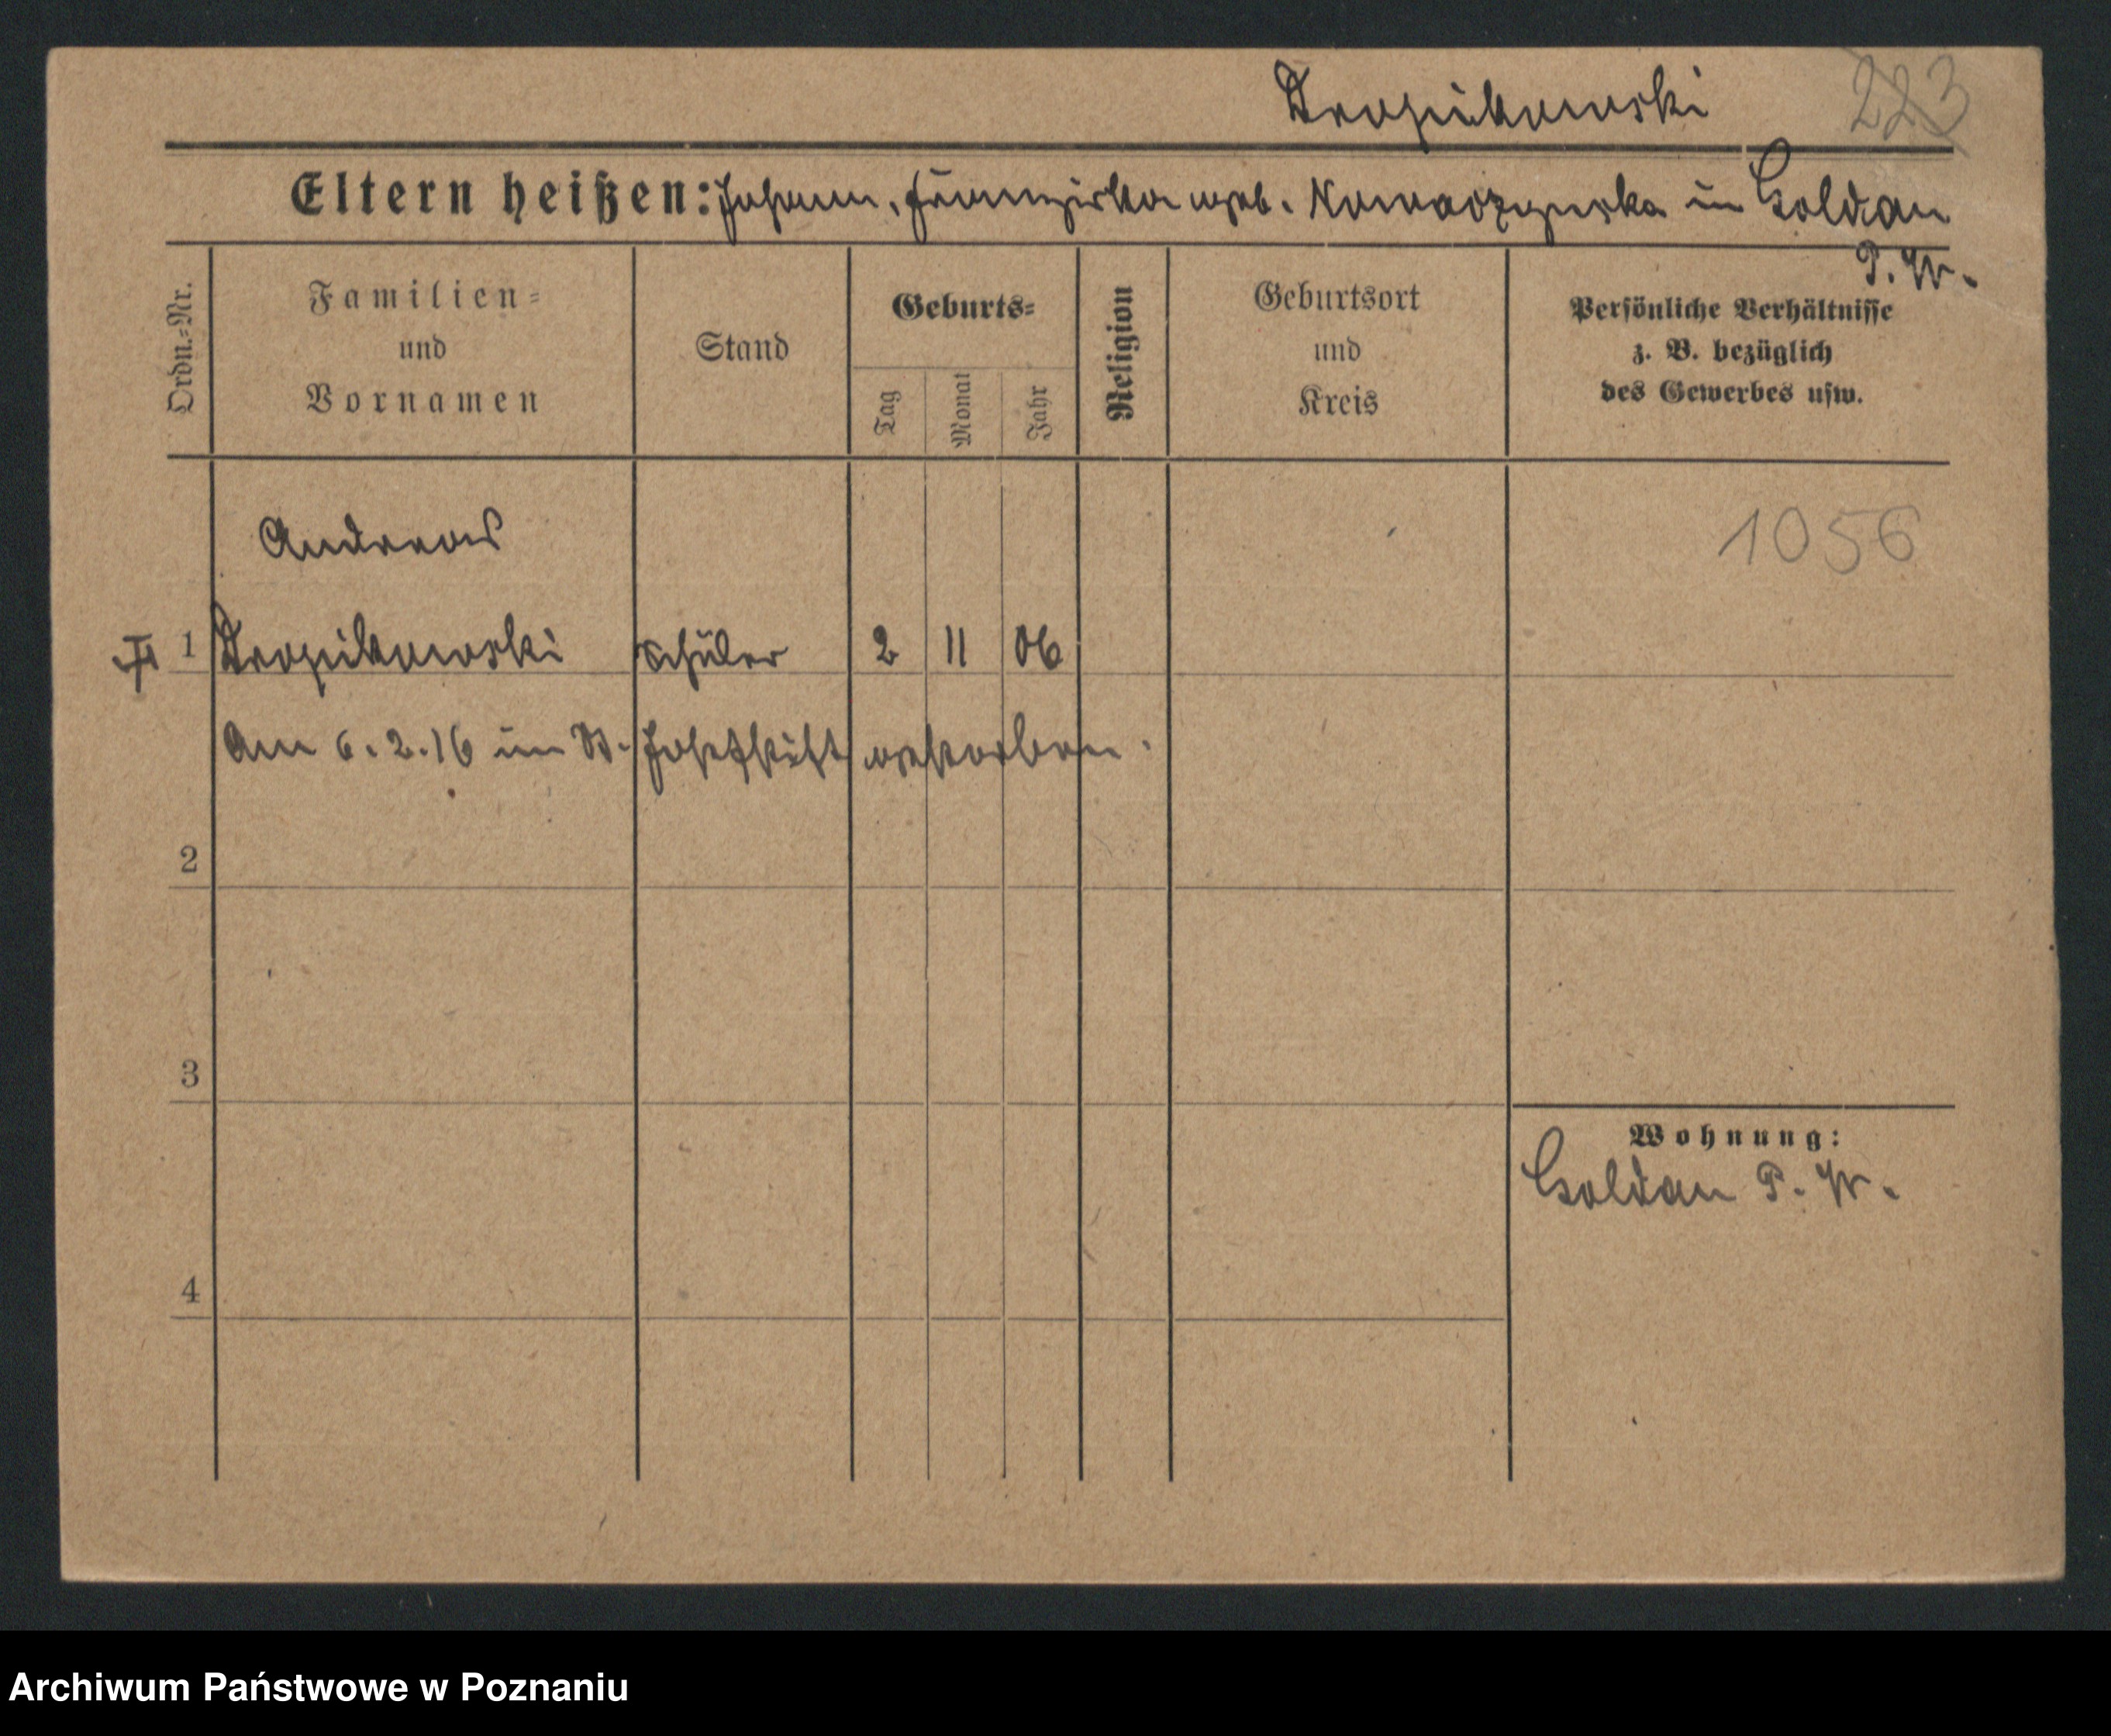 Kropikowski 223
Eltern heißen: Johann, Franziska geb. Nowaczynska in Goldau
P. W.
Ordn.-Nr.
Familien-
und
Vornamen
Stand
Geburts-
Tag
Monat
Jahr
Religion
Geburtsort
und
Kreis
Persönliche Verhältnisse
z. B. bezüglich
des Gewerbes usw.
Andreas
1056
1 Kropikowski Schüler 2 11 06
Am 6.2.16 im St. Josefstift gestorben.
2
3
Wohnung:
Goldau P. W.
4
Archiwum Państwowe w Poznaniu